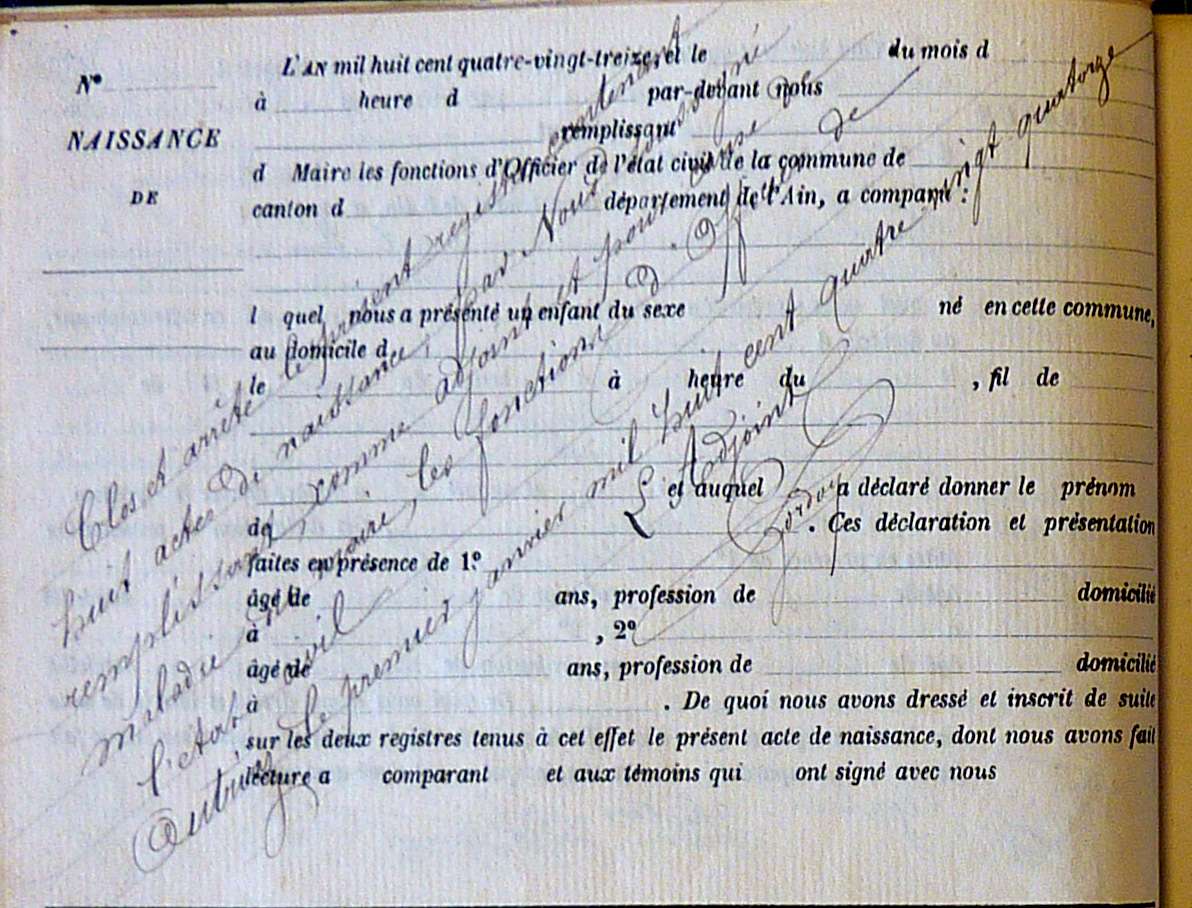 N°
NAISSANCE
DE
L'AN mil huit cent quatre-vingt-treize, et le du mois d
à heure d par-devant nous
remplissant
d Maire les fonctions d'Officier de l'état civil de la commune de
canton d département de l'Ain, a comparu :
l quel nous a présenté un enfant du sexe né en cette commune,
au domicile d
le à heure du , fil de
et auquel a déclaré donner le prénom
de . Ces déclaration et présentation
faites en présence de 1°
âgé de ans, profession de domicilié
à , 2°
âgé de ans, profession de domicilié
à . De quoi nous avons dressé et inscrit de suite
sur les deux registres tenus à cet effet le présent acte de naissance, dont nous avons fait
lecture a comparant et aux témoins qui ont signé avec nous
Clos et arrêté le présent registre contenant
huit actes de naissance, par Nous soussigné
remplissant, comme adjoint et pour cause de
maladie du maire, les fonctions d'Officier de
l'état civil
le premier janvier mil huit cent quatre vingt quatorze
L'Adjoint